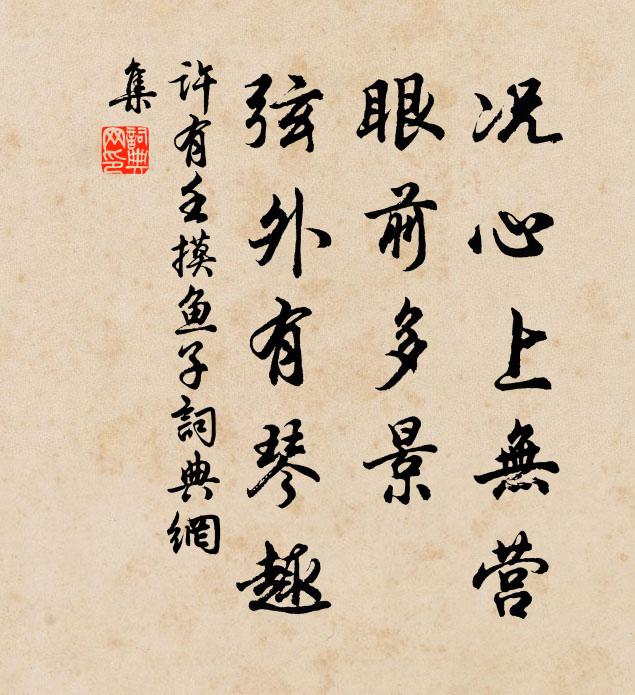 况心上無营
眼前多景
弦外有琴趣
許有壬摸鱼子詞典網
集
詞典
网印